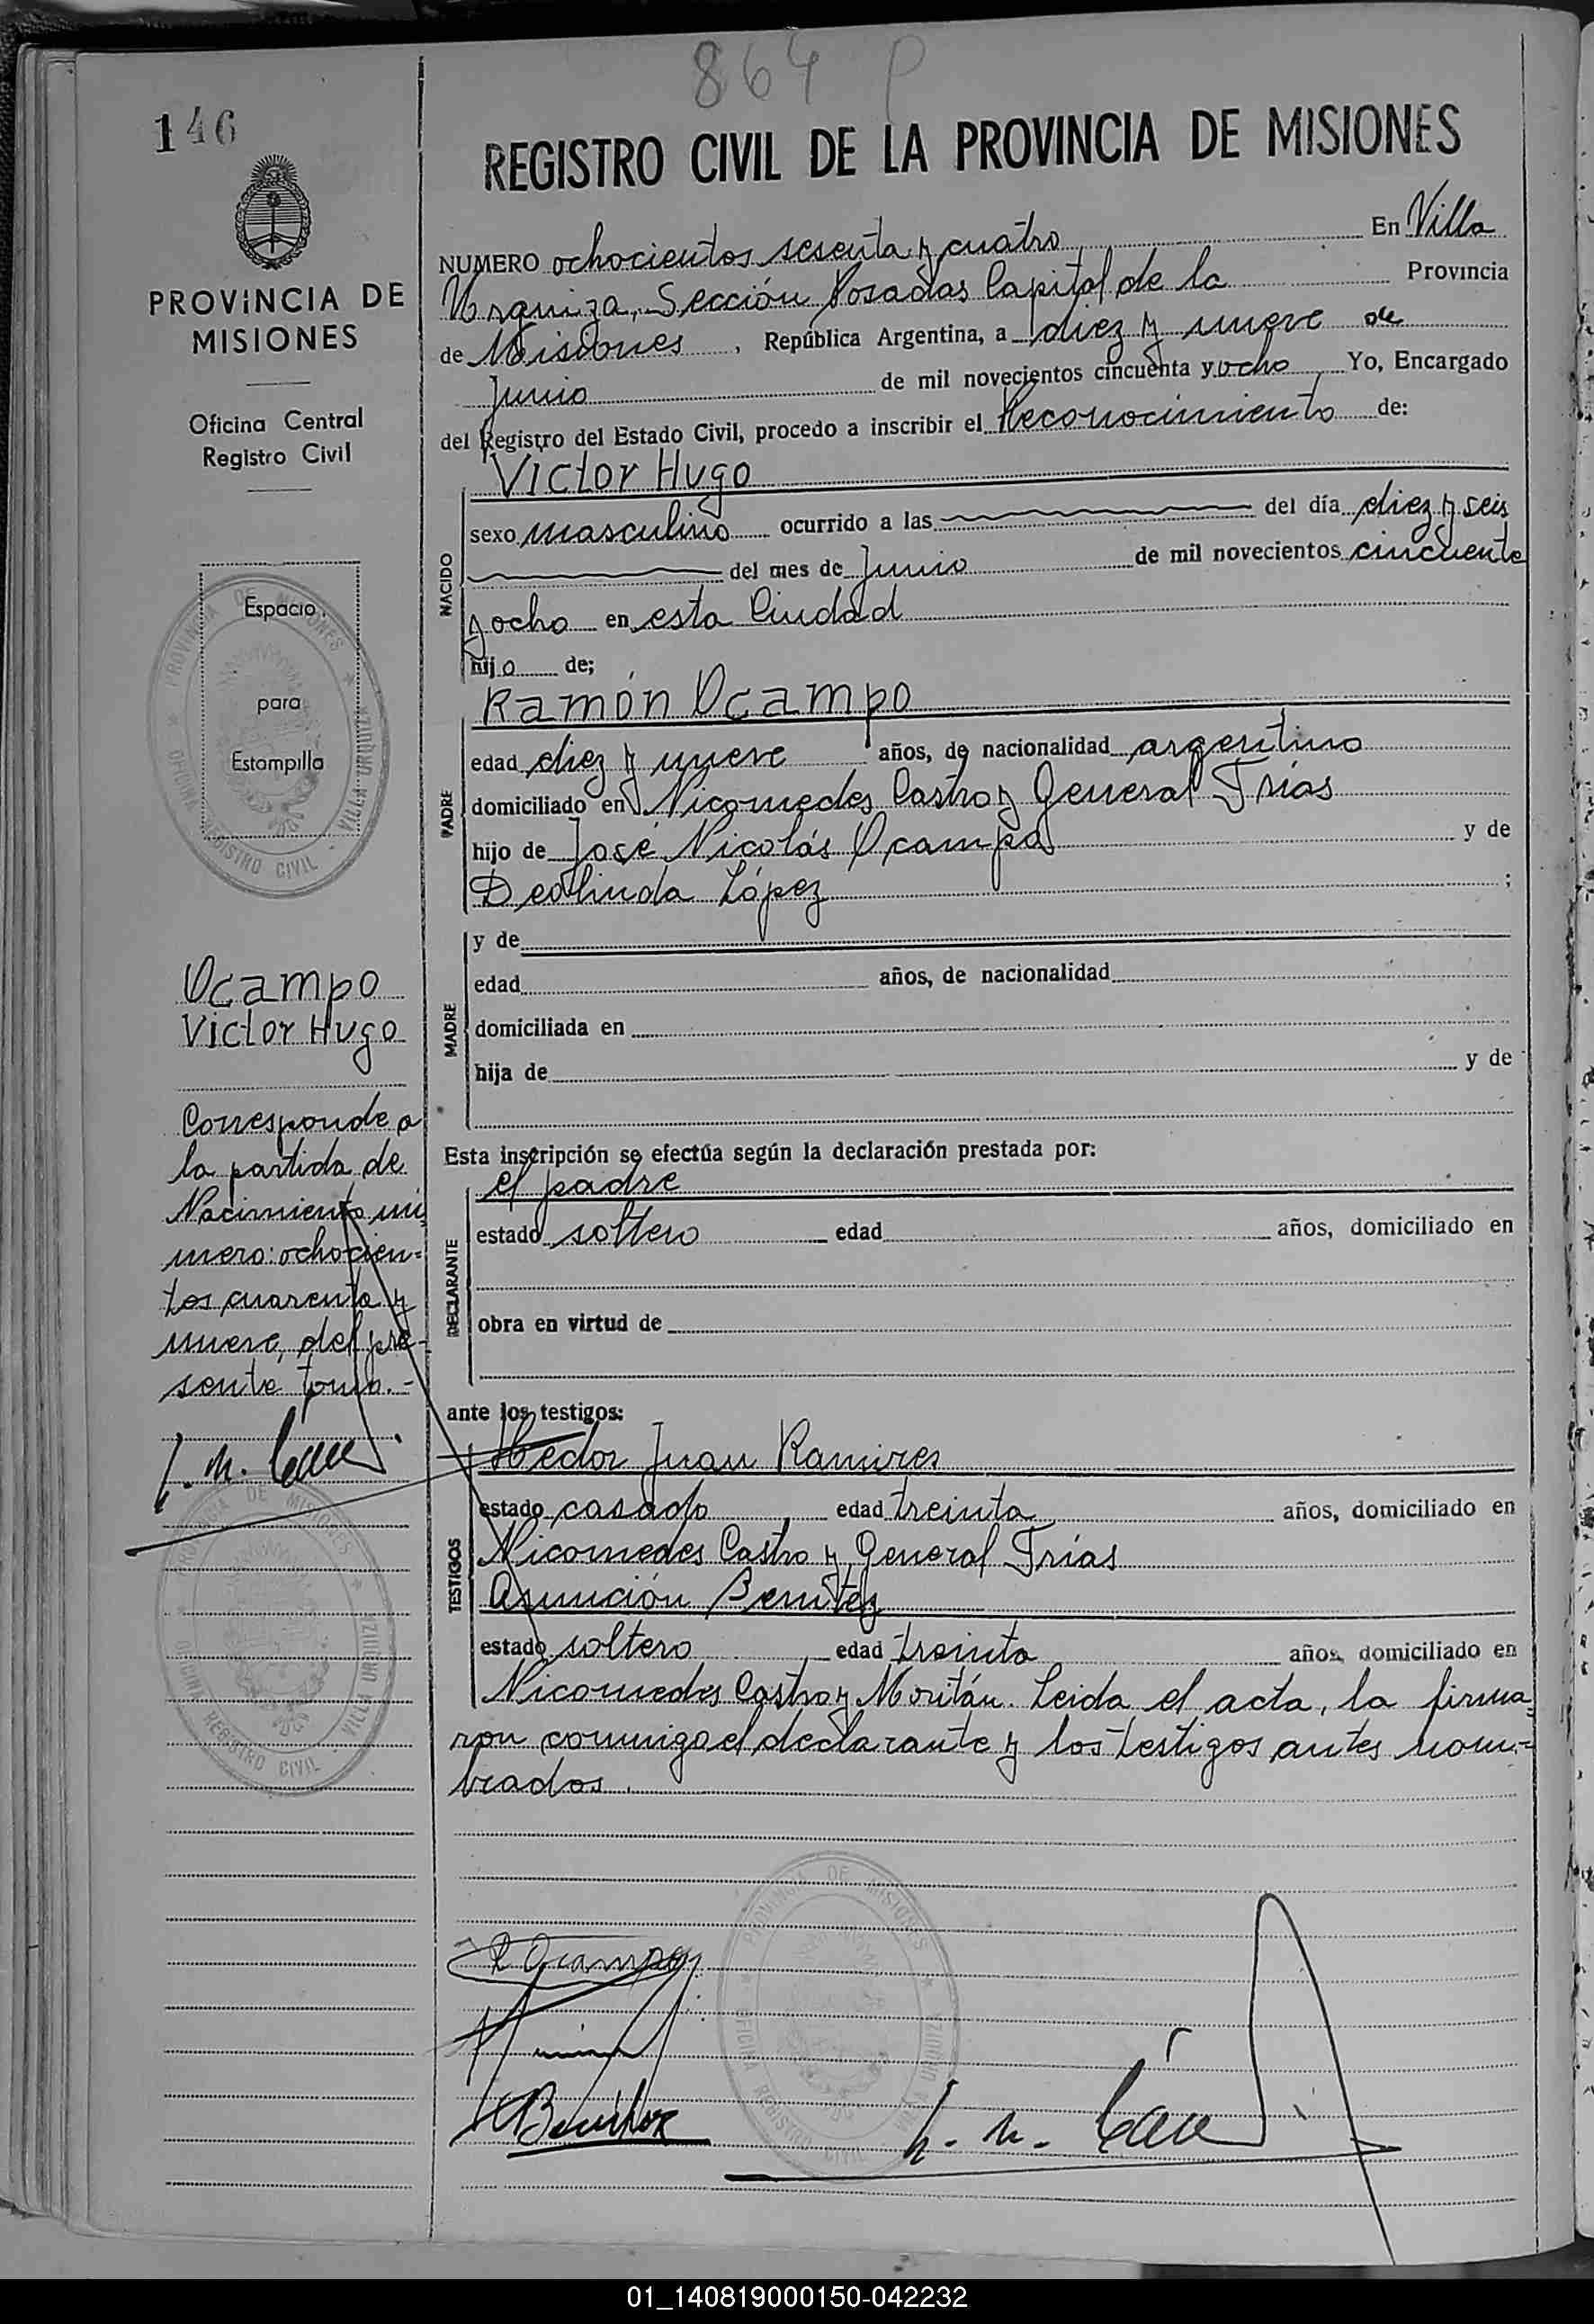 864 P
146
REGISTRO CIVIL DE LA PROVINCIA DE MISIONES
PROVINCIA DE
MISIONES
Oficina Central
Registro Civil
Espacio
para
Estampilla
PROVINCIA DE MISIONES
OFICINA REGISTRO CIVIL
VILLA URQUIZA
Ocampo
Victor Hugo
Corresponde a
la partida de
Nacimiento nú
mero: ochocien=
tos cuarenta y
nueve, del pre-
sente tomo.-
PROVINCIA DE MISIONES
OFICINA REGISTRO CIVIL
VILLA URQUIZA
NUMERO ochocientos sesenta y cuatro En Villa
Urquiza, Sección Posadas Capital de la Provincia
de Misiones, República Argentina, a diez y nueve de
Junio de mil novecientos cincuenta y ocho Yo, Encargado
del Registro del Estado Civil, procedo a inscribir el Reconocimiento de:
NACIDO
Victor Hugo
sexo masculino ocurrido a las del día diez y seis
del mes de Junio de mil novecientos cincuenta
y ocho en esta Ciudad
hijo de;
PADRE
Ramón Ocampo
edad diez y nueve años, de nacionalidad argentino
domiciliado en Nicomedes Castro y General Frías
hijo de José Nicolás Ocampo y de
Deolinda López ;
MADRE
y de
edad años, de nacionalidad
domiciliada en
hija de y de
Esta inscripción se efectúa según la declaración prestada por:
DECLARANTE
el padre
estado soltero edad años, domiciliado en
obra en virtud de
ante los testigos:
TESTIGOS
Hector Juan Ramires
estado casado edad treinta años, domiciliado en
Nicomedes Castro y General Frías
Asunción Benitez
estado soltero edad treinta años, domiciliado en
Nicomedes Castro y Moritán. Leida el acta, la firma=
ron conmigo el declarante y los testigos antes nom=
brados.
PROVINCIA DE MISIONES
OFICINA REGISTRO CIVIL
VILLA URQUIZA
R Ocampo
ABenitez
01_140819000150-042232